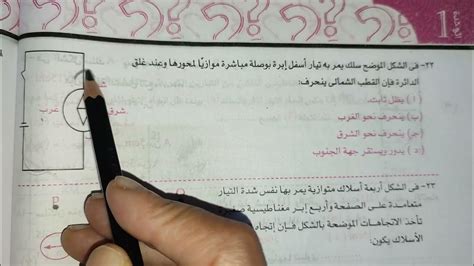 1
الوحدة
٢٢- فى الشكل الموضح سلك يمر به تيار أسفل إبرة بوصلة مباشرة موازيًا لمحورها وعند غلق
الدائرة فإن القطب الشمالى ينحرف:
( أ ) يظل ثابتًا.
(ب) ينحرف نحو الغرب
(جـ) ينحرف نحو الشرق
(د) يدور ويستقر جهة الجنوب
شرق
غرب
٢٣- فى الشكل أربعة أسلاك متوازية يمر بها نفس شدة التيار
متعامدة على الصفحة وأربع إبر مغناطيسية
تأخذ الاتجاهات الموضحة بالشكل فإن إتجاه
الأسلاك يكون: